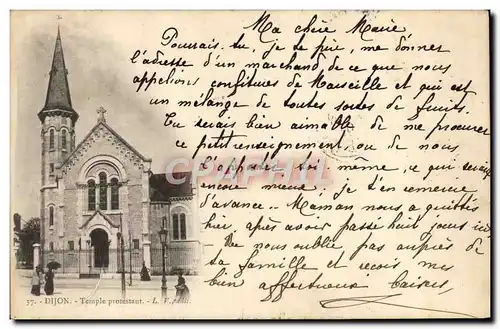 Ma chère Marie
Pourrais-tu, je te prie, me donner
l'adresse d'un marchand de ce que nous
appelions confitures de Marseille et qui est
un mélange de toutes sortes de fruits.
Tu serais bien aimable de me procurer
ce petit renseignement, ou de nous
l'apporter toi même, ce qui serait
encore mieux, je t'en remercie
d'avance. Maman nous a quittés
hier après avoir passé huit jours ici
Ne nous oublie pas auprès de
ta famille et reçois mes
bien affectueux baisers
CPARAMA
37. - DIJON. - Temple protestant. - L. V.